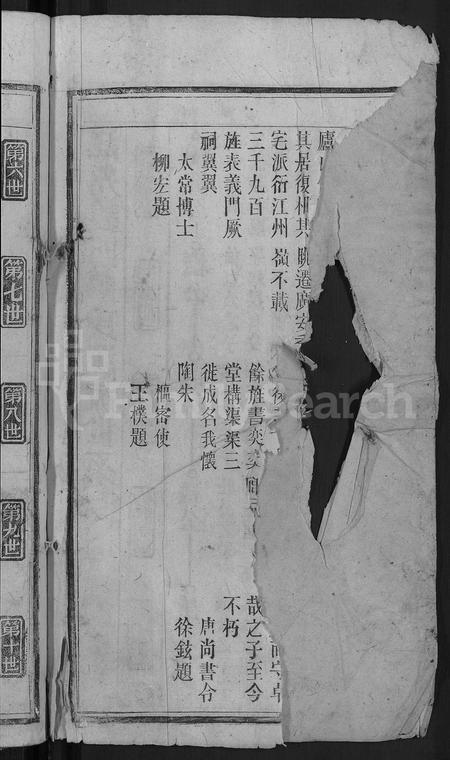 廬
其居復
遷廣安
宅派衍江州
嶺不載
三千九百
旌表義門厥
祠翼翼
太常博士
柳宏題
餘旌書奕
堂構渠渠三
徙成名我懷
陶朱
樞密使
王樸題
哉之子至今
不朽
唐尚書令
徐鉉題
第六世
第七世
第八世
第九世
第十世